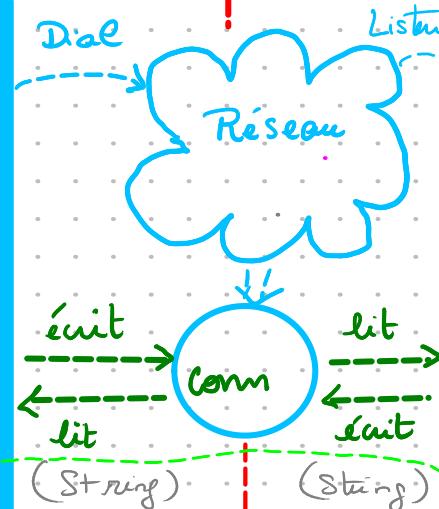 Dial
Listen
Réseau
écrit
lit
Conn
lit
écrit
(String)
(String)